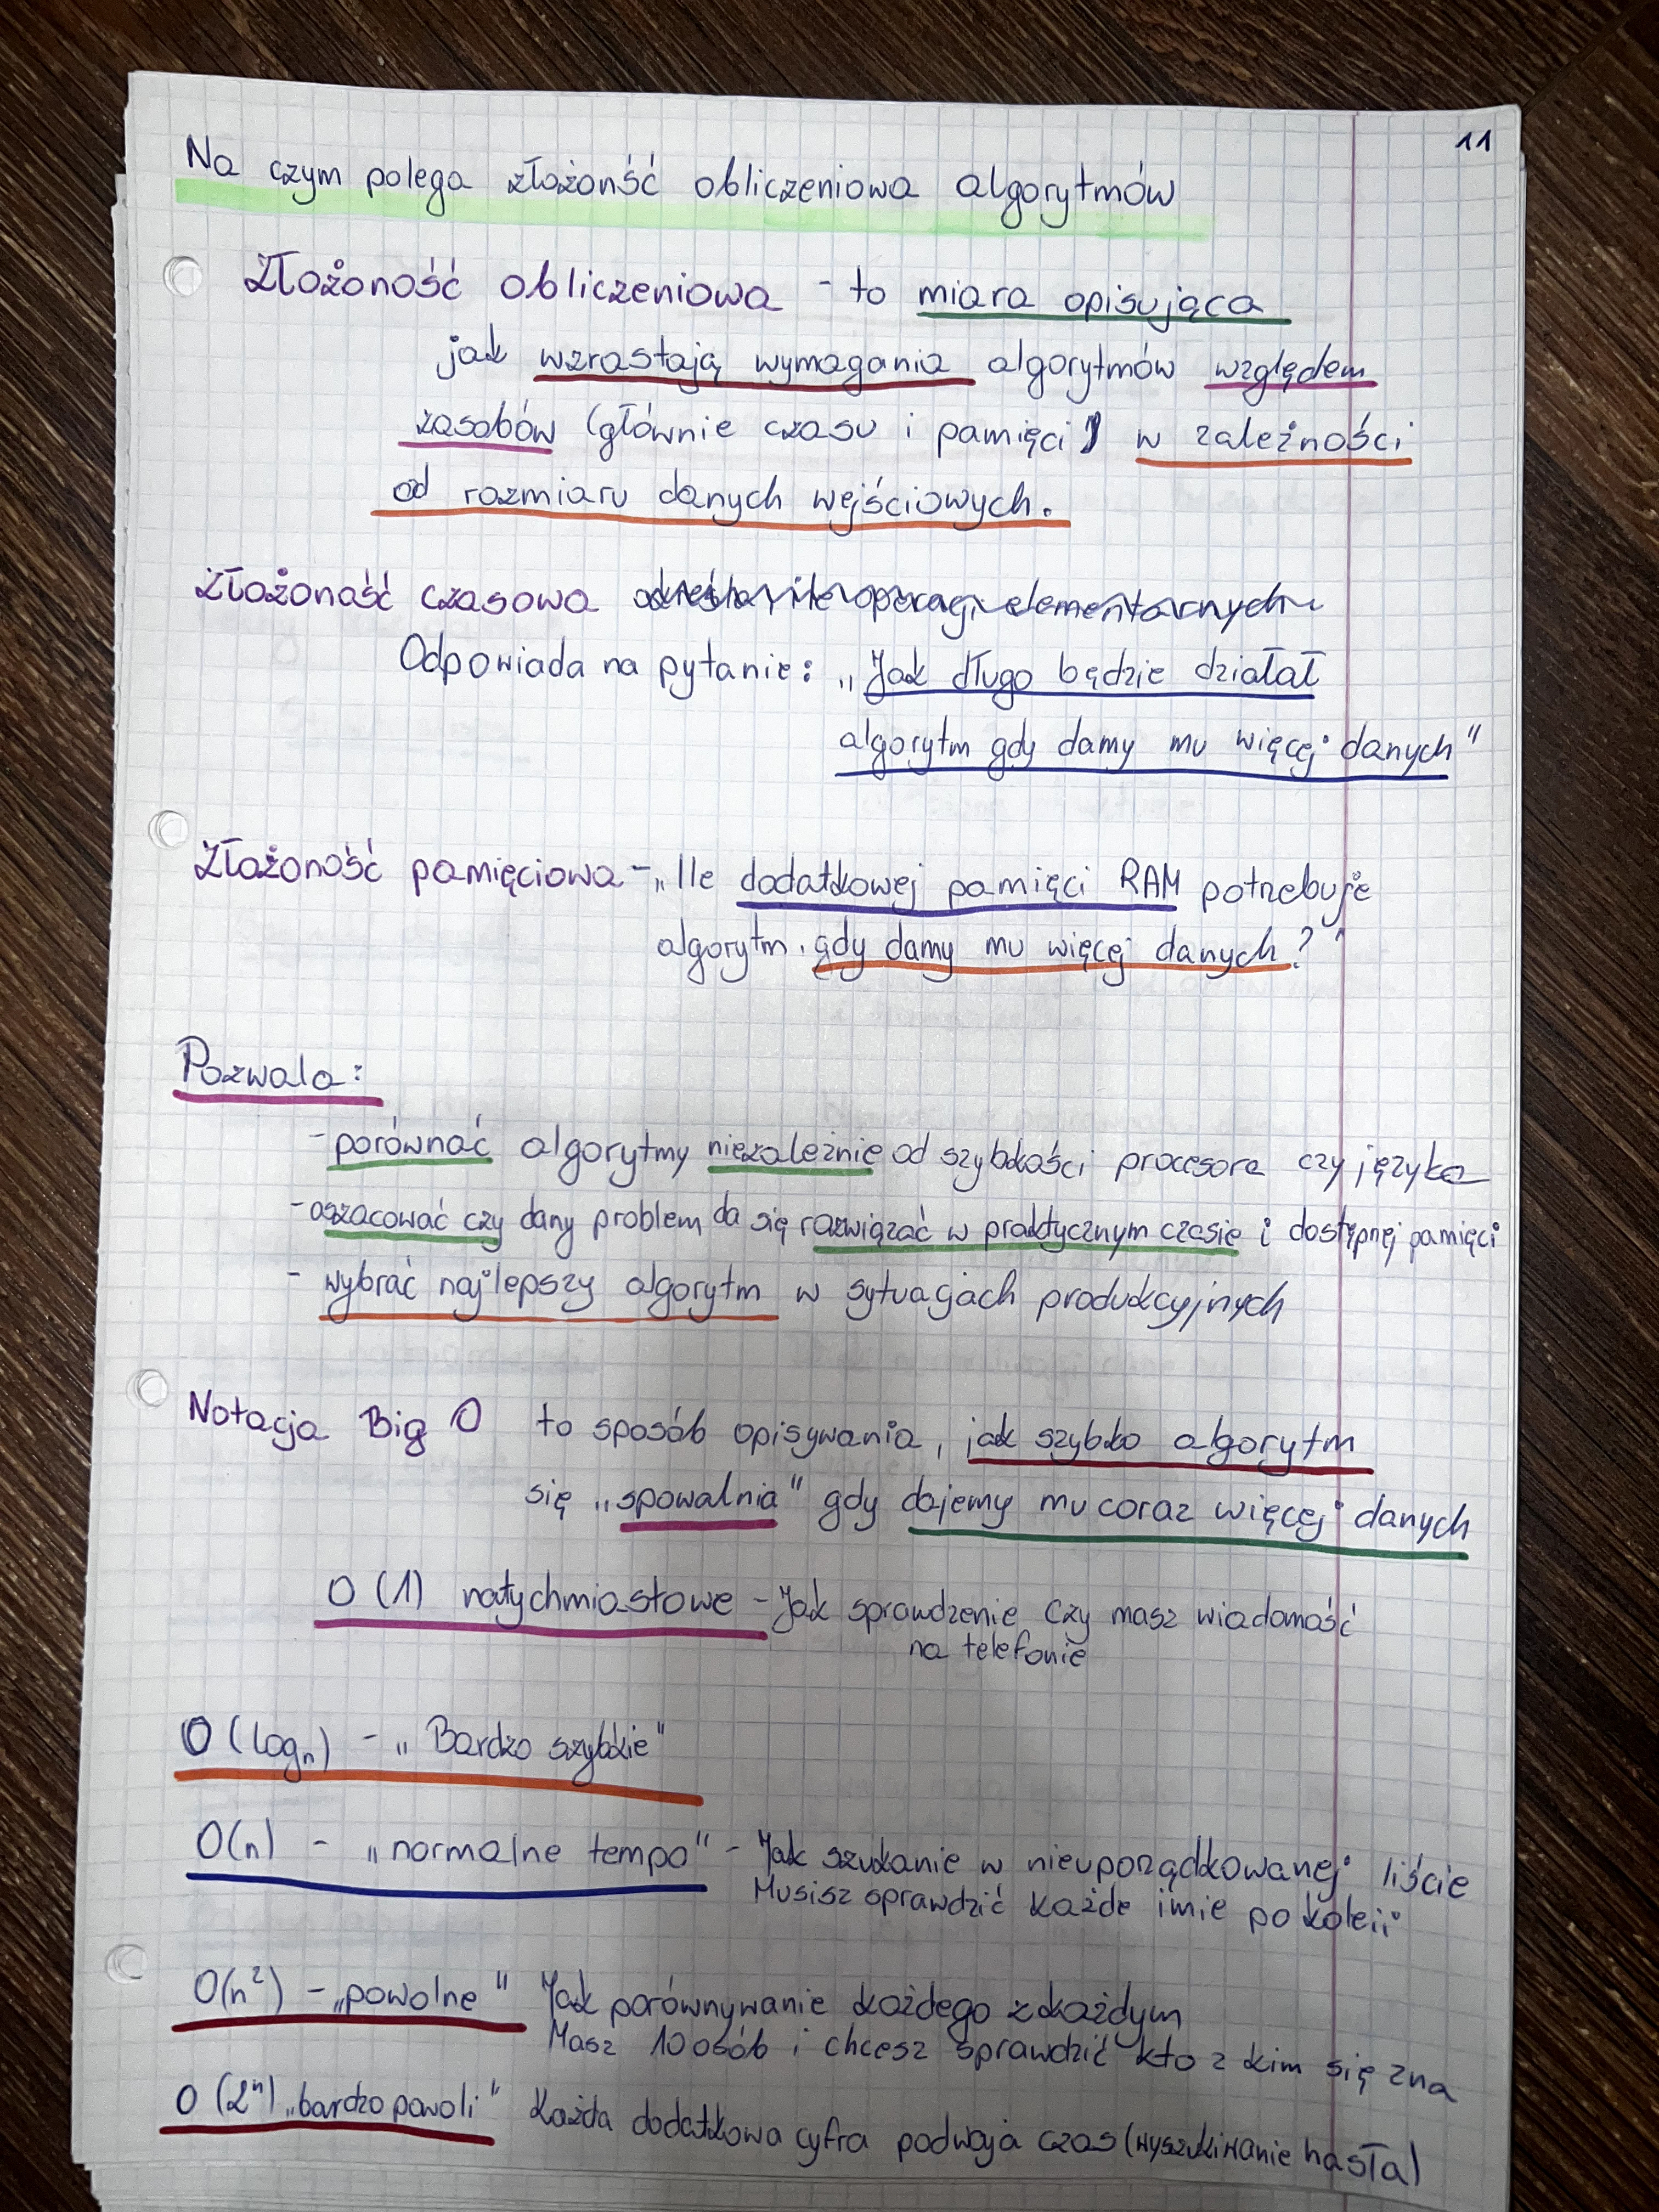 11
Na czym polega złożoność obliczeniowa algorytmów
Złożoność obliczeniowa - to miara opisująca
jak wzrastają wymagania algorytmów względem
zasobów (głównie czasu i pamięci) w zależności
od rozmiaru danych wejściowych.
Złożoność czasowa określa, ile operacji elementarnych
Odpowiada na pytanie: „Jak długo będzie działał
algorytm gdy damy mu więcej danych"
Złożoność pamięciowa - „Ile dodatkowej pamięci RAM potrzebuje
algorytm, gdy damy mu więcej danych?"
Pozwala:
- porównać algorytmy niezależnie od szybkości procesora czy języka
- oszacować czy dany problem da się rozwiązać w praktycznym czasie i dostępnej pamięci
- wybrać najlepszy algorytm w sytuacjach produkcyjnych
Notacja Big O to sposób opisywania, jak szybko algorytm
się „spowalnia" gdy dajemy mu coraz więcej danych
O (1) natychmiastowe - Jak sprawdzenie czy masz wiadomość
na telefonie
O (logn) - „Bardzo szybkie"
O(n) - „normalne tempo" - Jak szukanie w nieuporządkowanej liście
Musisz sprawdzić każde imie po koleii
O(n²) - „powolne" Jak porównywanie każdego z każdym
Masz 10 osób i chcesz sprawdzić kto z kim się zna
O (2ⁿ) „bardzo powoli" Każda dodatkowa cyfra podwaja czas (wyszukiwanie hasła)